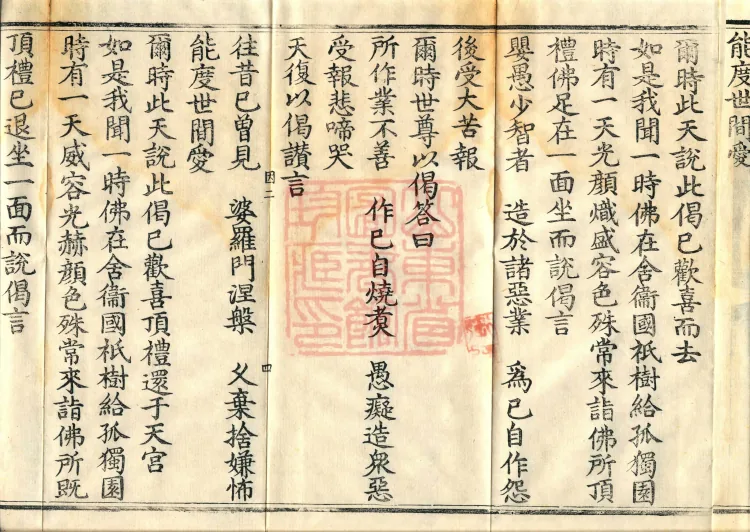 能度世間愛
爾時此天說此偈已歡喜而去
如是我聞一時佛在舍衞國祇樹給孤獨園
時有一天光顏熾盛容色殊常來詣佛所頂
禮佛足在一面坐而說偈言
嬰愚少智者 造於諸惡業 為已自作怨
後受大苦報
爾時世尊以偈答曰
所作業不善 作已自燒煑 愚癡造衆惡
受報悲啼哭
天復以偈讃言
因二 四
往昔已曾見 婆羅門涅槃 久棄捨嫌怖
能度世間愛
爾時此天說此偈已歡喜頂禮還于天宮
如是我聞一時佛在舍衞國祇樹給孤獨園
時有一天威容光赫顏色殊常來詣佛所既
頂禮已退坐一面而說偈言